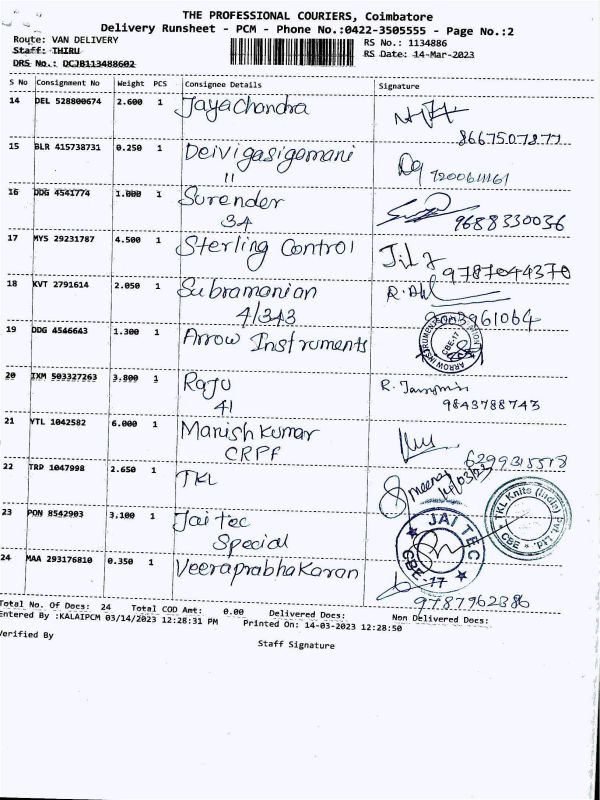 THE PROFESSIONAL COURIERS, Coimbatore
Delivery Runsheet - PCM - Phone No.:0422-3505555 - Page No.:2
Route: VAN DELIVERY
RS No.: 1134886
Staff: THIRU
RS Date: 14-Mar-2023
DRS No.: DCJB113488602
S No Consignment No Weight PCS Consignee Details Signature
14 DEL 528800674 2.600 1 Jayachandra
8667507877
15 BLR 415738731 0.250 1 Deivigasigamani
11
16 DDG 4541774 1.000 1 Surender
34 9688330036
17 MYS 29231787 4.500 1 Sterling Control
9787044370
18 KVT 2791614 2.050 1 Subramanian
4/343
19 DDG 4546643 1.300 1 Arrow Instruments
CBE-17
20 IXM 503327263 3.800 1 Raju
41 9843788743
21 VTL 1042582 6.000 1 Manish Kumar
CRPF
22 TRP 1047998 2.650 1 TKL
Meena
14/03/23
TKL Knits (India) Pvt. Ltd. * CBE *
23 PON 8542903 3.100 1 Jai tec
Special
JAI TEC
CBE-17
24 MAA 293176810 0.350 1 Veeraprabhakaran
9787962386
Total No. Of Docs: 24 Total COD Amt: 0.00 Delivered Docs: Non Delivered Docs:
Entered By :KALAIPCM 03/14/2023 12:28:31 PM Printed On: 14-03-2023 12:28:50
Verified By
Staff Signature